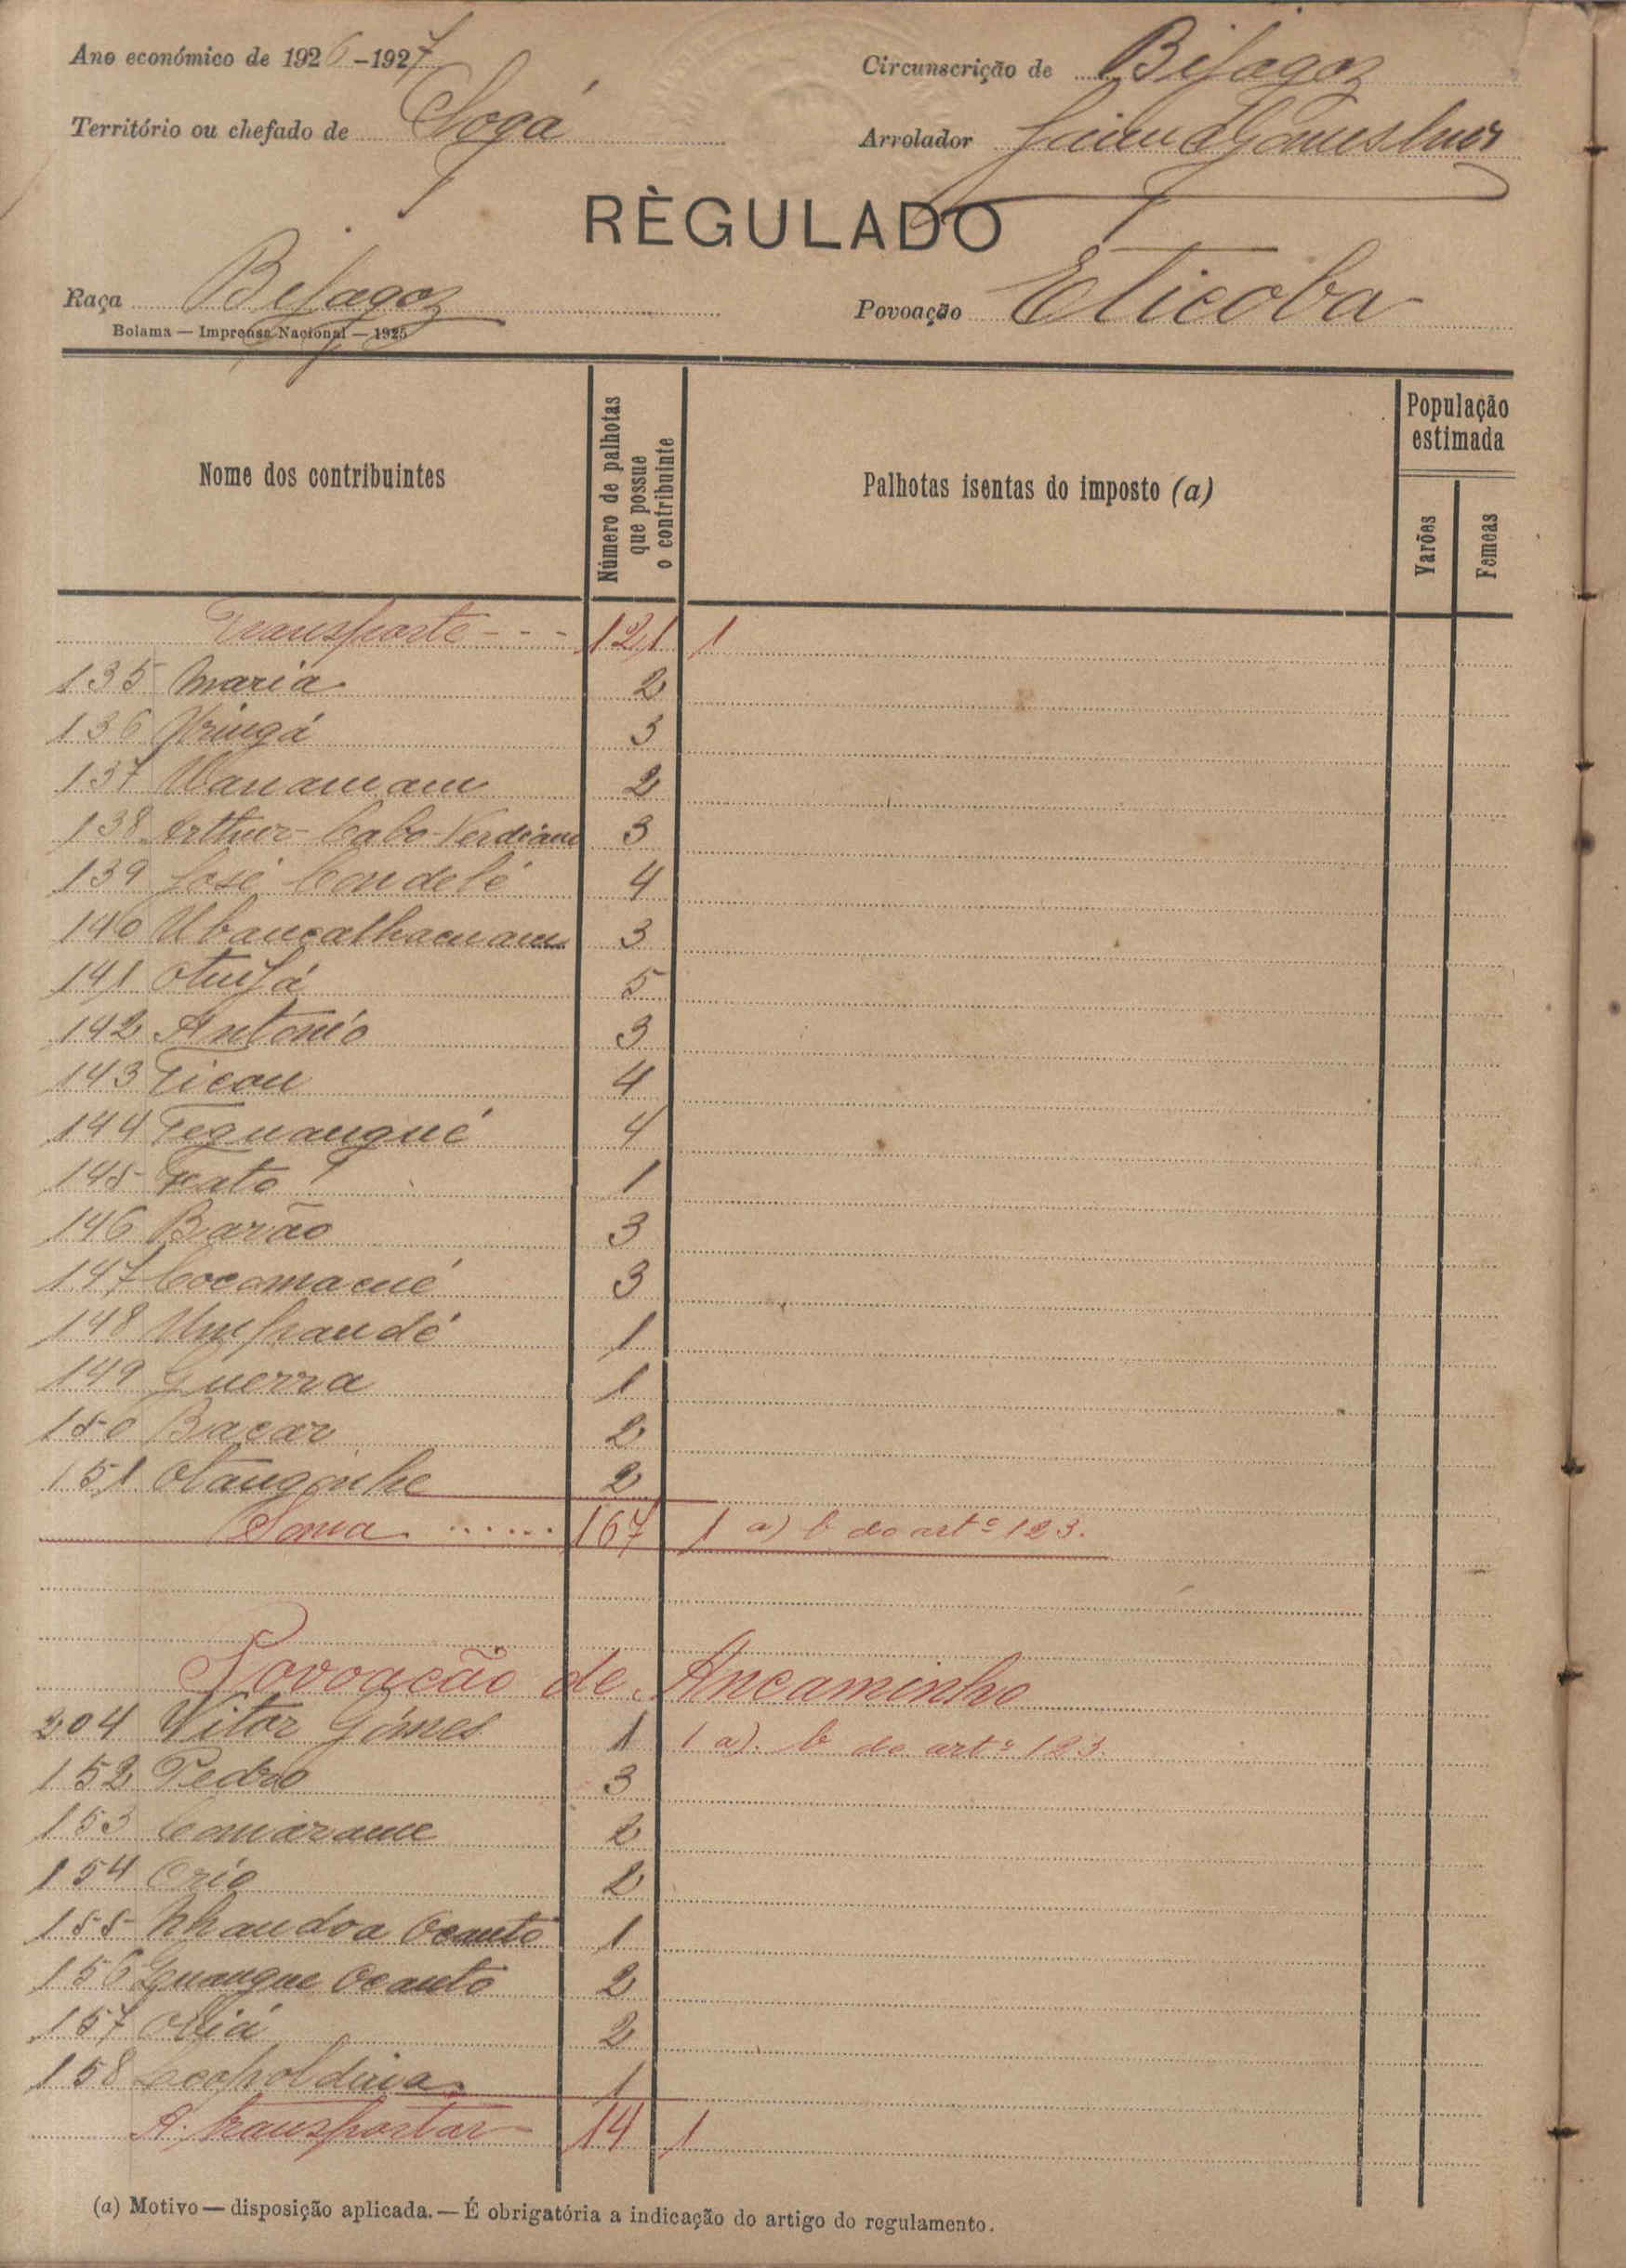 Ano económico de 1926-1927
Circunscrição de Bijagoz
Território ou chefado de Sogá
Arrolador Jaime Gomes
RÈGULADO
Raça Bijagoz
Povoação Eticoba
Bolama — Imprensa Nacional — 1925
Nome dos contribuintes
Número de palhotas que possue o contribuinte
Palhotas isentas do imposto (a)
População estimada
Varões
Femeas
Transporte - - - 121 1
135 Maria 2
136 3
137 2
138 Arthur Cabo-Verdeano 3
139 José Condelé 4
140 3
141 5
142 Antonio 3
143 Ticou 4
144 Teguangué 4
145 1
146 Barão 3
147 3
148 1
149 Guerra 1
150 Bacar 2
151 2
Soma ...... 167 1 a) b do artº 123.
Povoação de Ancaminho
204 Vitor Gómes 1 1 a). b do artº 123.
152 Pedro 3
153 2
154 Orio 2
155 Nhandoa Ocanto 1
156 Guangue Ocanto 2
157 2
158 Leopoldina 1
A transportar 14 1
(a) Motivo — disposição aplicada. — É obrigatória a indicação do artigo do regulamento.